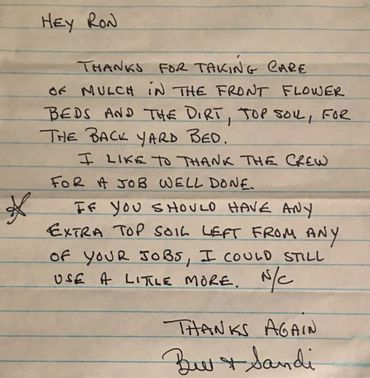 HEY RON
THANKS FOR TAKING CARE
OF MULCH IN THE FRONT FLOWER
BEDS AND THE DIRT, TOP SOIL, FOR
THE BACK YARD BED.
I LIKE TO THANK THE CREW
FOR A JOB WELL DONE.
IF YOU SHOULD HAVE ANY
EXTRA TOP SOIL LEFT FROM ANY
OF YOUR JOBS, I COULD STILL
USE A LITTLE MORE. N/C
THANKS AGAIN
Bill + Sandi